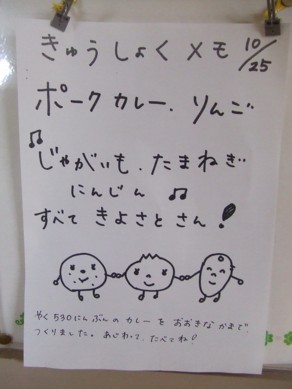 きゅうしょく メモ 10/25
ポークカレー、りんご
じゃがいも、たまねぎ
にんじん
すべて きよさと さん!
やく530にんぶんの カレーを おおきなかまで
つくりました。あじわって、たべてね!